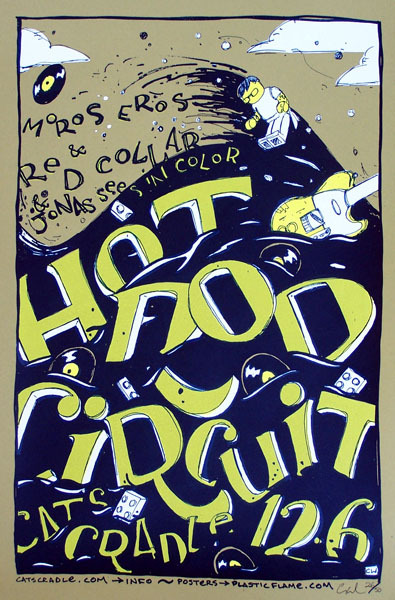 MOROS EROS
RED COLLAR
&
& JONAS SEES IN COLOR
HOT
ROD
CIRCUIT
CAT'S
CRADLE 12.6
CW
CATSCRADLE.COM → INFO ~ POSTERS → PLASTICFLAME.COM